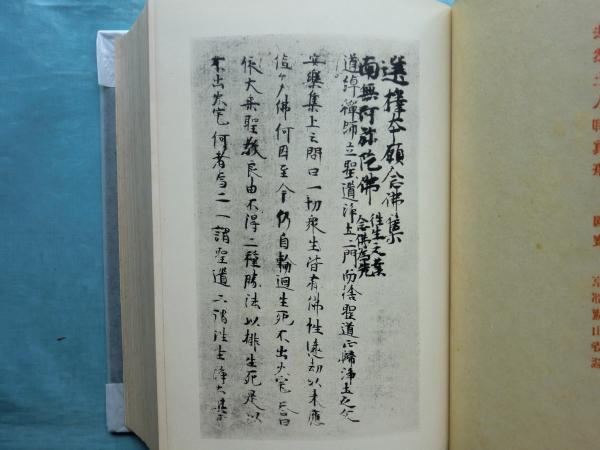 選擇本願念佛集
南無阿弥陀佛 往生之業
念佛為先
道綽禪師立聖道淨土二門而捨聖道正歸淨土之文
安樂集上云問曰一切衆生皆有佛性遠劫以来應
值多佛何因至今仍自輪迴生死不出火宅答曰
依大乗聖教良由不得二種勝法以排生死是以
不出火宅何者為二一謂聖道二謂往生淨土